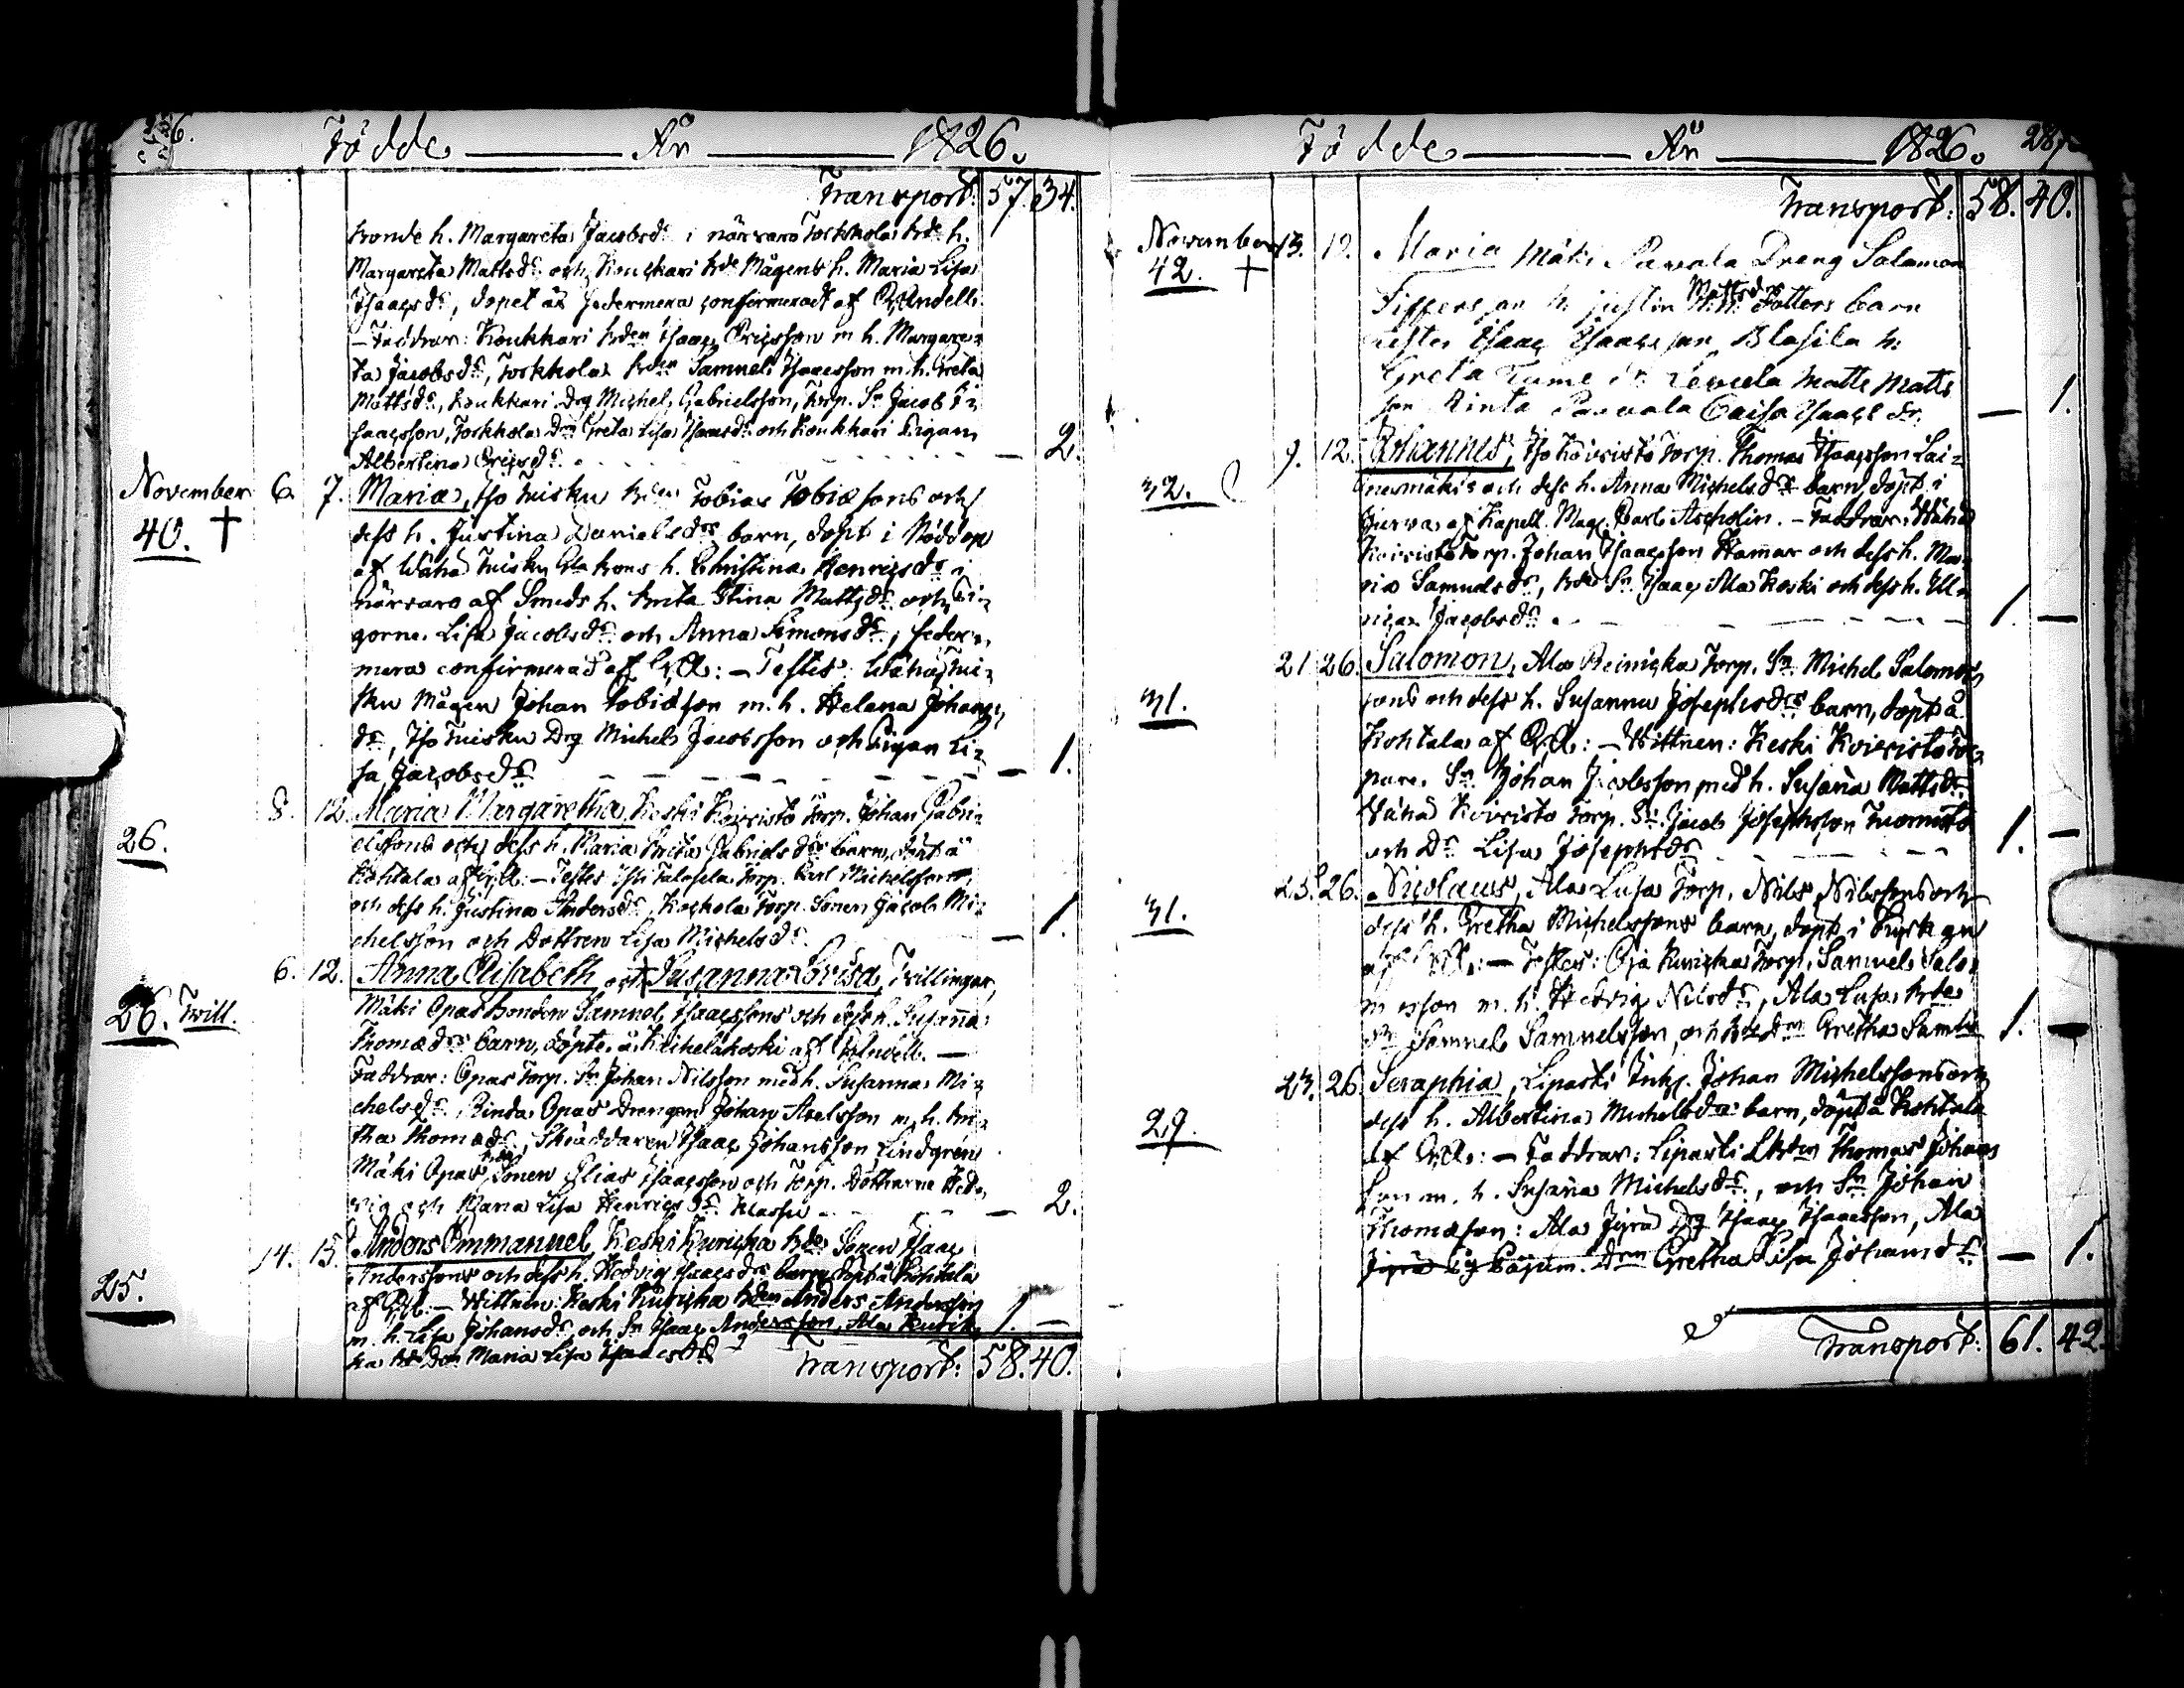 286.
Födde År 1826.
Transport: 57. 34.
bonde h. Margareta Jacobsdr i närvaro Torkkola bde h.
Margareta Mattsdr och Koukkari bde Mågens h. Maria Lisa
Isaacsdr, dopet är sedermera confirmeradt af
Faddrar: Koukkari bden Isaac Ericsson m h. Margare=
ta Jacobsdr, Torkkola bden Samuel Isaacsson m. h. Greta
Mattsdr, Koukkari Drg Michel Gabrielsson, Torp. Sn Jacob I=
saacsson, Torkkola Greta Lisa Isaacsdr och Koukkari Pigan
Albertina Ericsdr — 2.
November 6. 7. Maria, Iso Tuisku bden Tobias Tobiæsons och
40. † dess h. Justina Danielsdrs barn, döpt i Nöddop
af Wähä Tuisku h. Christina Henricsdr i
närvaro af Smeds h. Brita Stina Mattsdr och Pi=
gorna Lisa Jacobsdr och Anna Simonsdr, seder=
mera confirmerad af : — Testes: Wähä Tui=
sku Mågen Johan Tobiæson m. h. Helena Johans=
dr, Iso Tuisku Drg Michel Jacobsson och Pigan Li=
sa Jacobsdr — 1.
8. 12. Maria Margaretha, Keski Koivisto Torp. Johan Gabri=
26. elssons och dess h. Maria Brita Gabrielsdrs barn, döpt å
Kohtala af : — Testes Torp. Carl Michelsson
och dess h. Justina Andersdr, Kockola Torp. Sonen Jacob Mi=
chelsson och Dottren Lisa Michelsdr — 1.
6. 12. Anna Elisabeth och Susanna Lovisa, Tvillingar,
26. Twill. Mäki Opas bonden Samuel Isaacssons och dess h. Susanna
Thomædrs barn, döpte å af —
Faddrar: Opas Torp. Sn Johan Nilsson med h. Susanna Mi=
chelsdr, Rinda Opas Drengen Johan Axelsson m. h. Bri=
tha Thomædr, Skräddaren Isaac Johansson Lindgren
Mäki Opas bde Sonen Elias Isaacsson och Torp. Döttrarne Hed=
vig och Maria Lisa Henricsdr Klassu — 2.
14. 15. Anders Emmanuel, Keski Kuricka bde Sonen Isaac
25. Anderssons och dess h. Hedvig Isaacsdrs barn, döpt å Kohtala
af : — Wittnen: Keski Kuricka bden Anders Andersson
m. h. Lisa Johansdr, och Sn Isaac Andersson, Ala Kurik= 1. —
ka bde Don Maria Lisa Isaacsdr
Transport: 58. 40.
Födde År 1826. 287
Transport: 58. 40.
November 13. Maria Mäki Pawala Dreng Salamon
42. † h. Justin Mattsdotters barn
testes Isaac Isaacsson Blasila h.
Greta Matts Matts
son Rinta Pawala Caisa Isaacsdr — 1.
9. 12. Johannes, Iso Koivisto Torp. Thomas Isaacsson Lai=
32. nesmäkis och dess h. Anna Michelsdrs barn, döpt i
Jurva af Kapell. Mag. Carl Ascholin. — Faddrar: Wähä
Koivisto Torp. Johan Isaacsson Hamar och dess h. Ma=
ria Samuelsdr, bde Sn Isaac Ala Koski och dess h. Ul=
rica Jacobsdr. 1. —
21. 26. Salomon, Ala Reinicka Torp. Sn Michel Salomons
31. sons och dess h. Susanna Josephsdrs barn, döpt å
Kohtala af : — Wittnen: Keski Koivisto Tor=
pare Sn Johan Jacobsson med h. Susanna Mattsdr
Wähä Koivisto Torp. Sn Jacob Josephsson Tuomisto
och Dr Lisa Josephsdr 1. —
23. 26. Nicolaus, Ala Lusa Torp. Nils Nilssons och
31. dess h. Gretha Michelssons barn, döpt i
af : — Testes: Oja Kuricka Torp. Samuel Salo=
monsson m. h. Hedvig Nilsdr, Ala Lusa bde
Sn Samuel Samuelsson, och bde Dn Gretha 1. —
23. 26. Seraphia, Liparti Inhs. Johan Michelssons och
29. dess h. Albertina Michelsdrs barn, döpt å Kohtala
af : — Faddrar: Liparti Thomas Johans
son m. h. Susanna Michelsdr, och Sn Johan
Thomæson: Ala Jyrä Dg Isaac Isaacsson, Ala
Jyrä Gretha Lisa Johansdr — 1.
Transport: 61. 42.